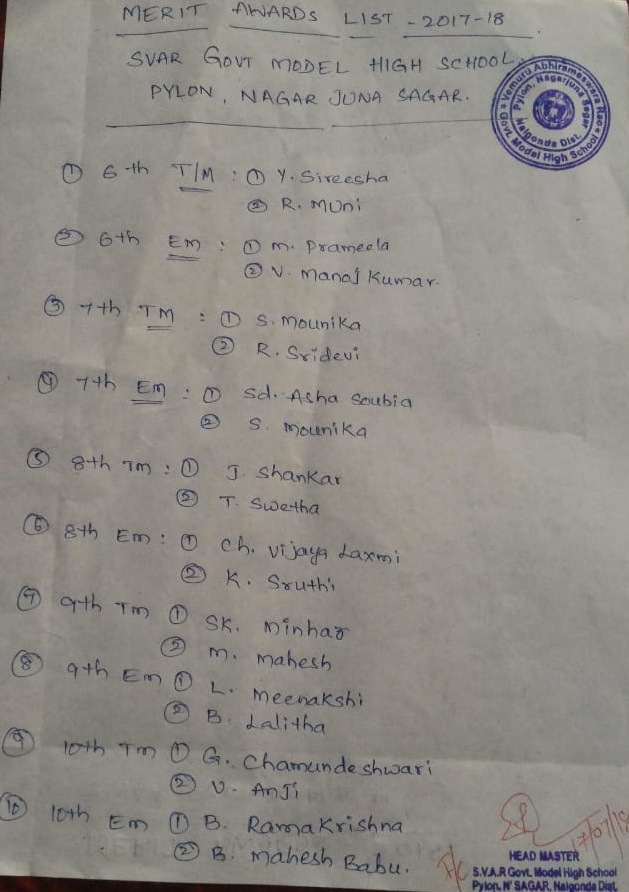 MERIT AWARDS LIST - 2017-18
SVAR GOVT MODEL HIGH SCHOOL,
PYLON, NAGAR JUNA SAGAR.
Kemuru Abhirameswara Rao
Govt. Model High School
Pylon, Nagarjuna Sagar
Nalgonda Dist.
① 6-th T/M : ① Y. Sireesha
② R. MUni
② 6th EM : ① M. Prameela
② V. Manoj Kumar.
③ 7th TM : ① S. Mounika
② R. Sridevi
④ 7th EM : ① Sd. Asha Soubia
② S. Mounika
⑤ 8th TM : ① J. Shankar
② T. Swetha
⑥ 8th Em : ① Ch. Vijaya Laxmi
② K. Sruthi
⑦ 9th Tm ① SK. Minhaz
② M. Mahesh
⑧ 9th Em ① L. Meenakshi
② B. Lalitha
⑨ 10th Tm ① G. Chamundeshwari
② V. Anji
⑩ 10th Em ① B. RamaKrishna
② B. Mahesh Babu.
F/C
17/07/18
HEAD MASTER
S.V.A.R Govt. Model High School
Pylon, N' SAGAR, Nalgonda Dist.